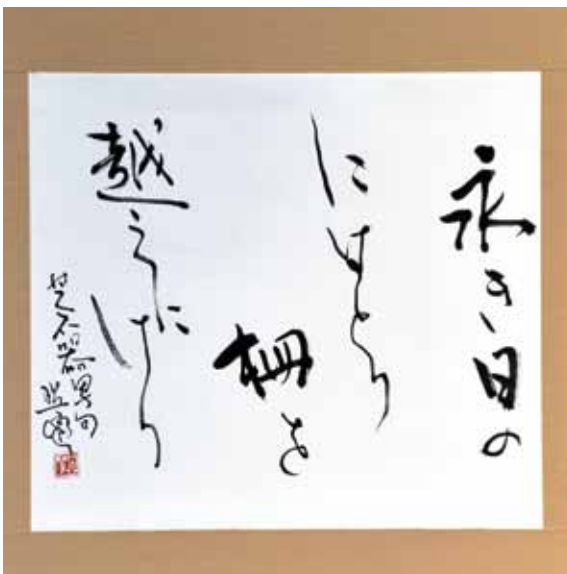 永き日の
にはとり
柵を
越えにけり
芝不器男句